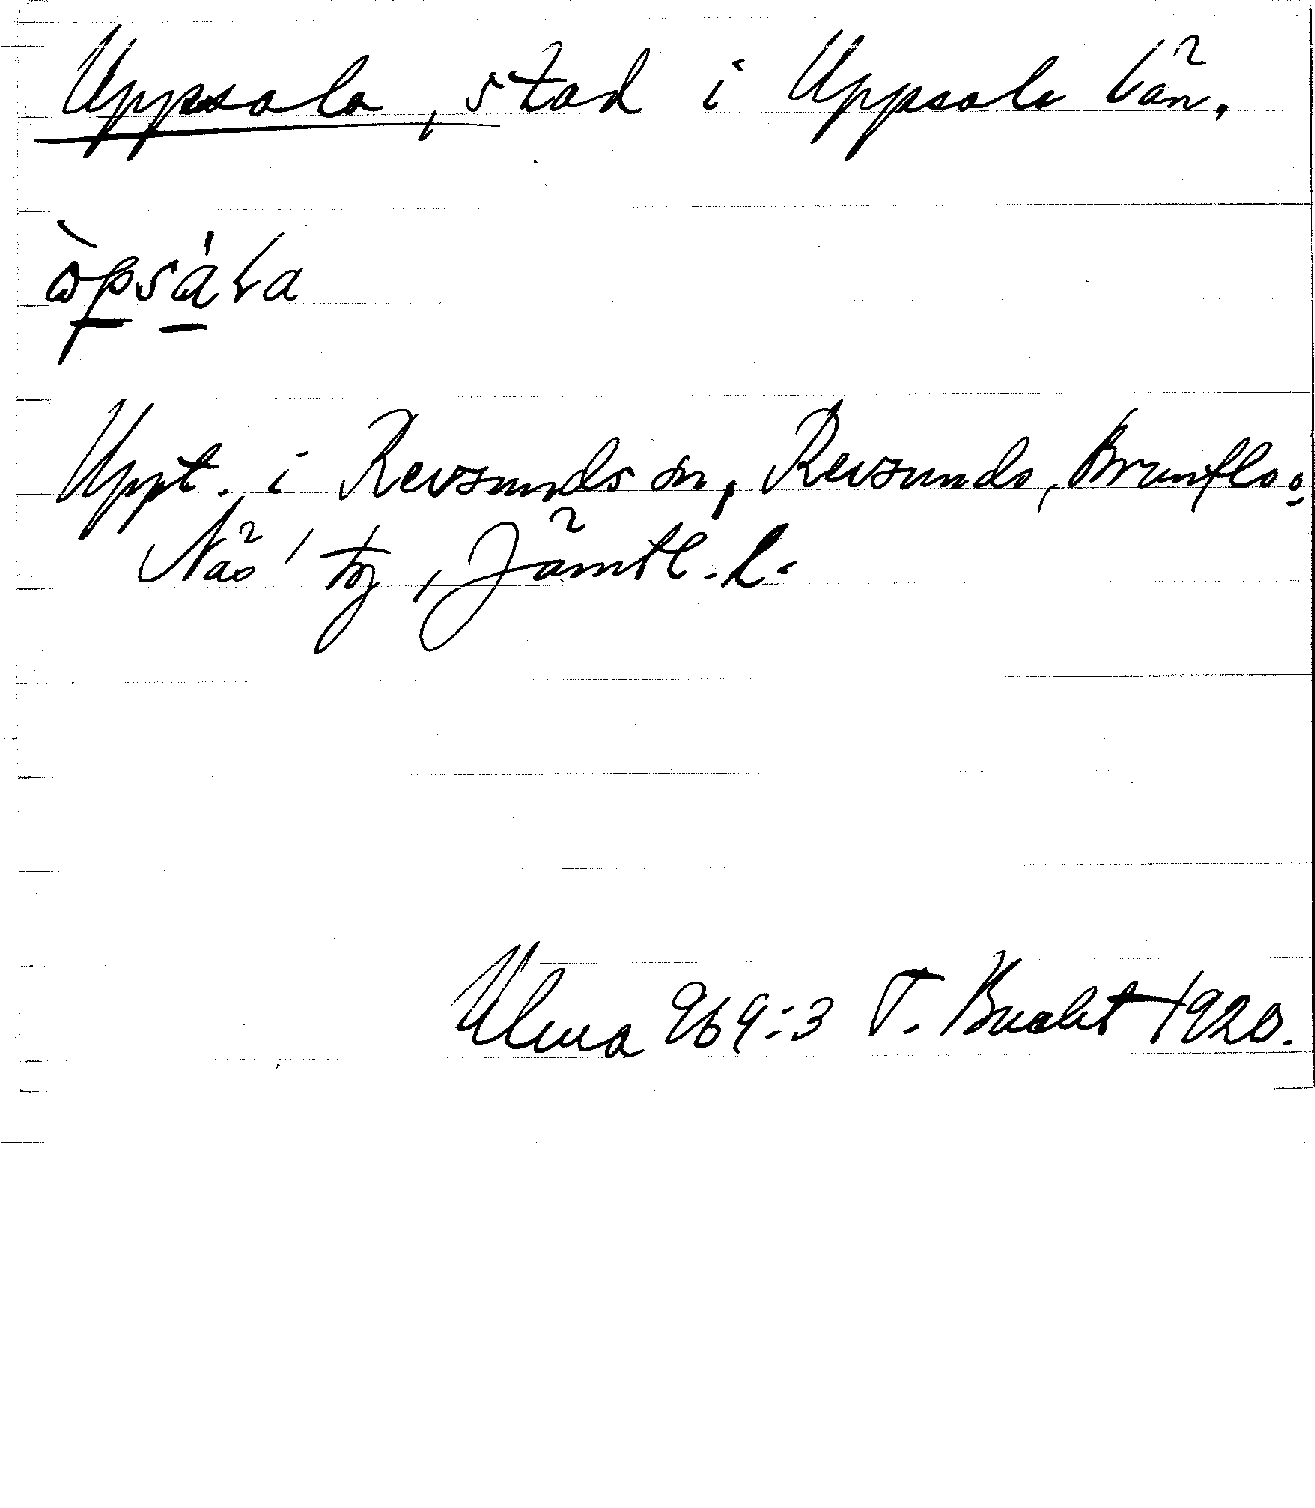 Uppsala, stad i Uppsala län.
òpsáɫa
Uppt. i Revsunds sn, Revsunds, Brunflo o.
Näs' tg, Jämtl. l.
Ulma 969:3 T. Bucht 1920.